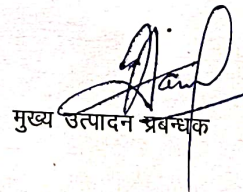 मुख्य उत्पादन प्रबन्धक